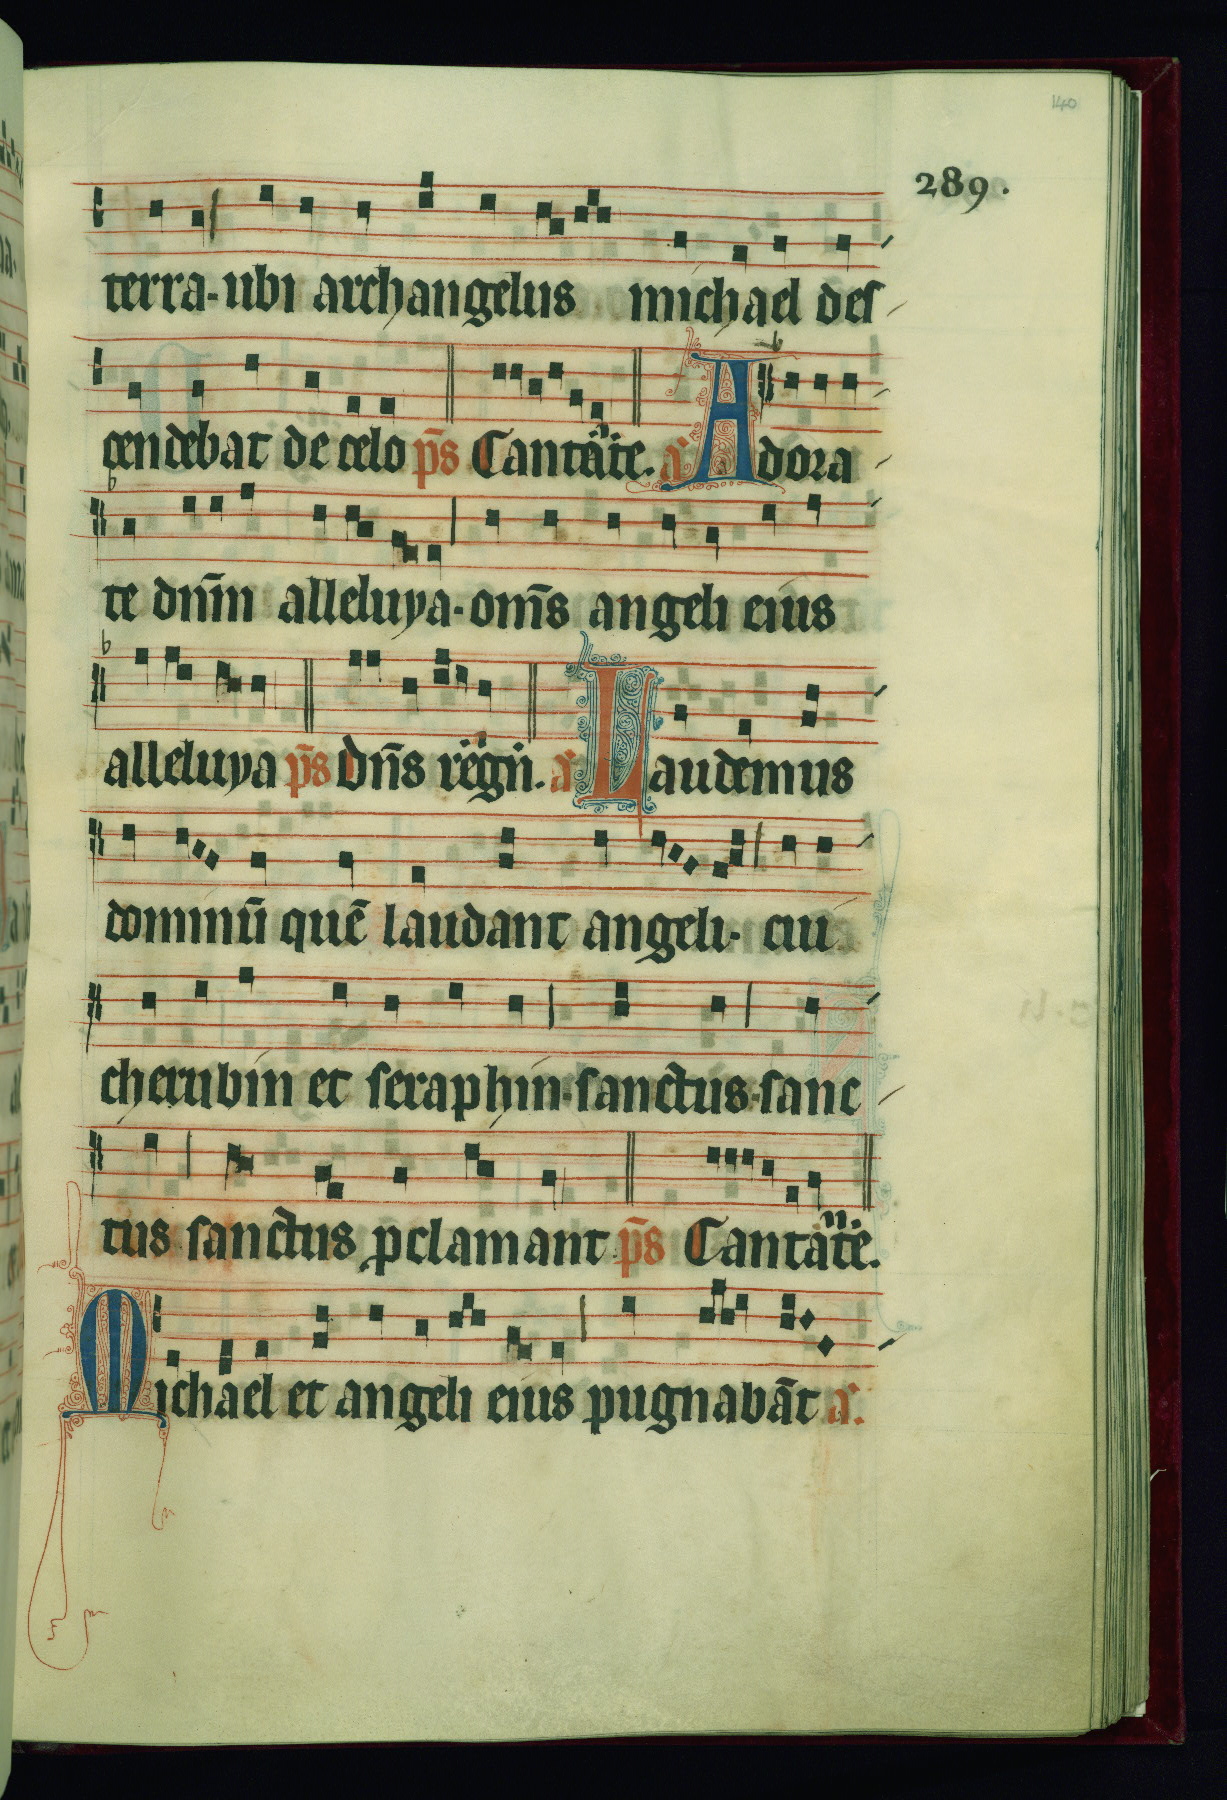 140
289.
terra. ubi archangelus michael des
cendebat de celo p̄s Cantate. aᷓ Adora
te dn̄m alleluya. om̄s angeli eius
alleluya p̄s Dn̄s regn̄. aᷓ Laudemus
dominū quē laudant angeli. cui
cherubin et seraphin. sanctus. sanc
tus sanctus ꝓclamant p̄s Cantate.
Michael et angeli eius pugnabāt aᷓ.